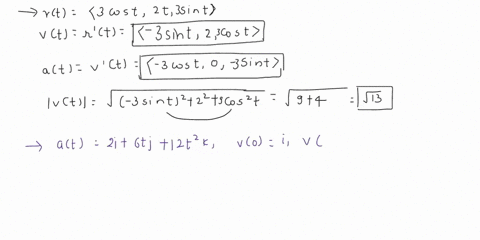 → r(t) = ⟨3cost, 2t, 3sint⟩
v(t) = r'(t) = ⟨-3sint, 2, 3cost⟩
a(t) = v'(t) = ⟨-3cost, 0, -3sint⟩
|v(t)| = √((-3sint)²+2²+9cos²t) = √(9+4) = √13
→ a(t) = 2i + 6tj + 12t²k, v(0) = i, v(